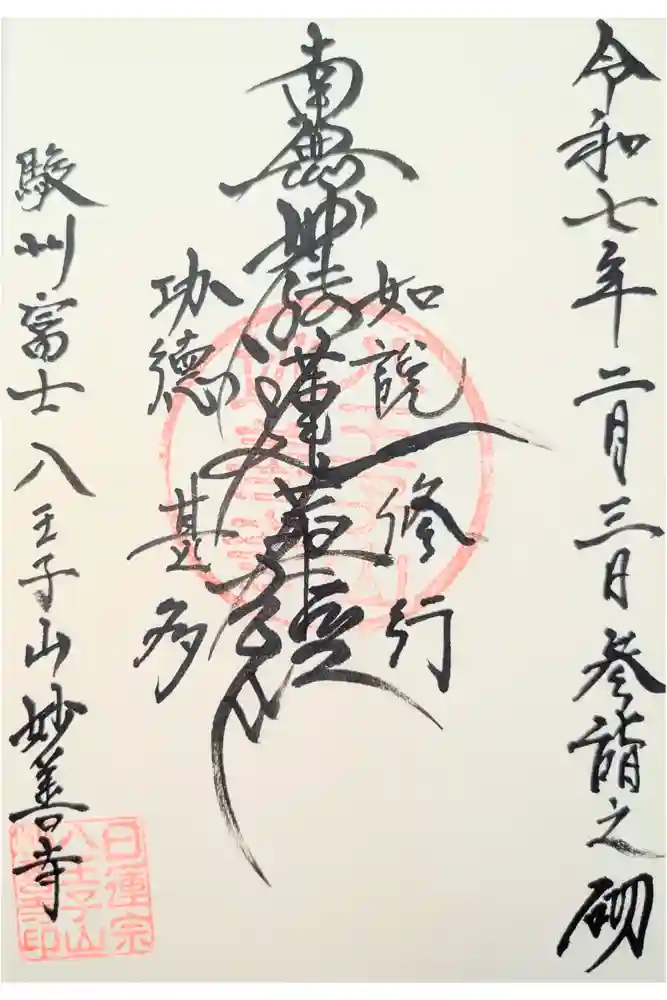 令和七年二月三日参詣之砌
如説修行
南無妙法蓮華経
功徳甚多
駿州富士八王子山妙善寺
日蓮宗
八王子山